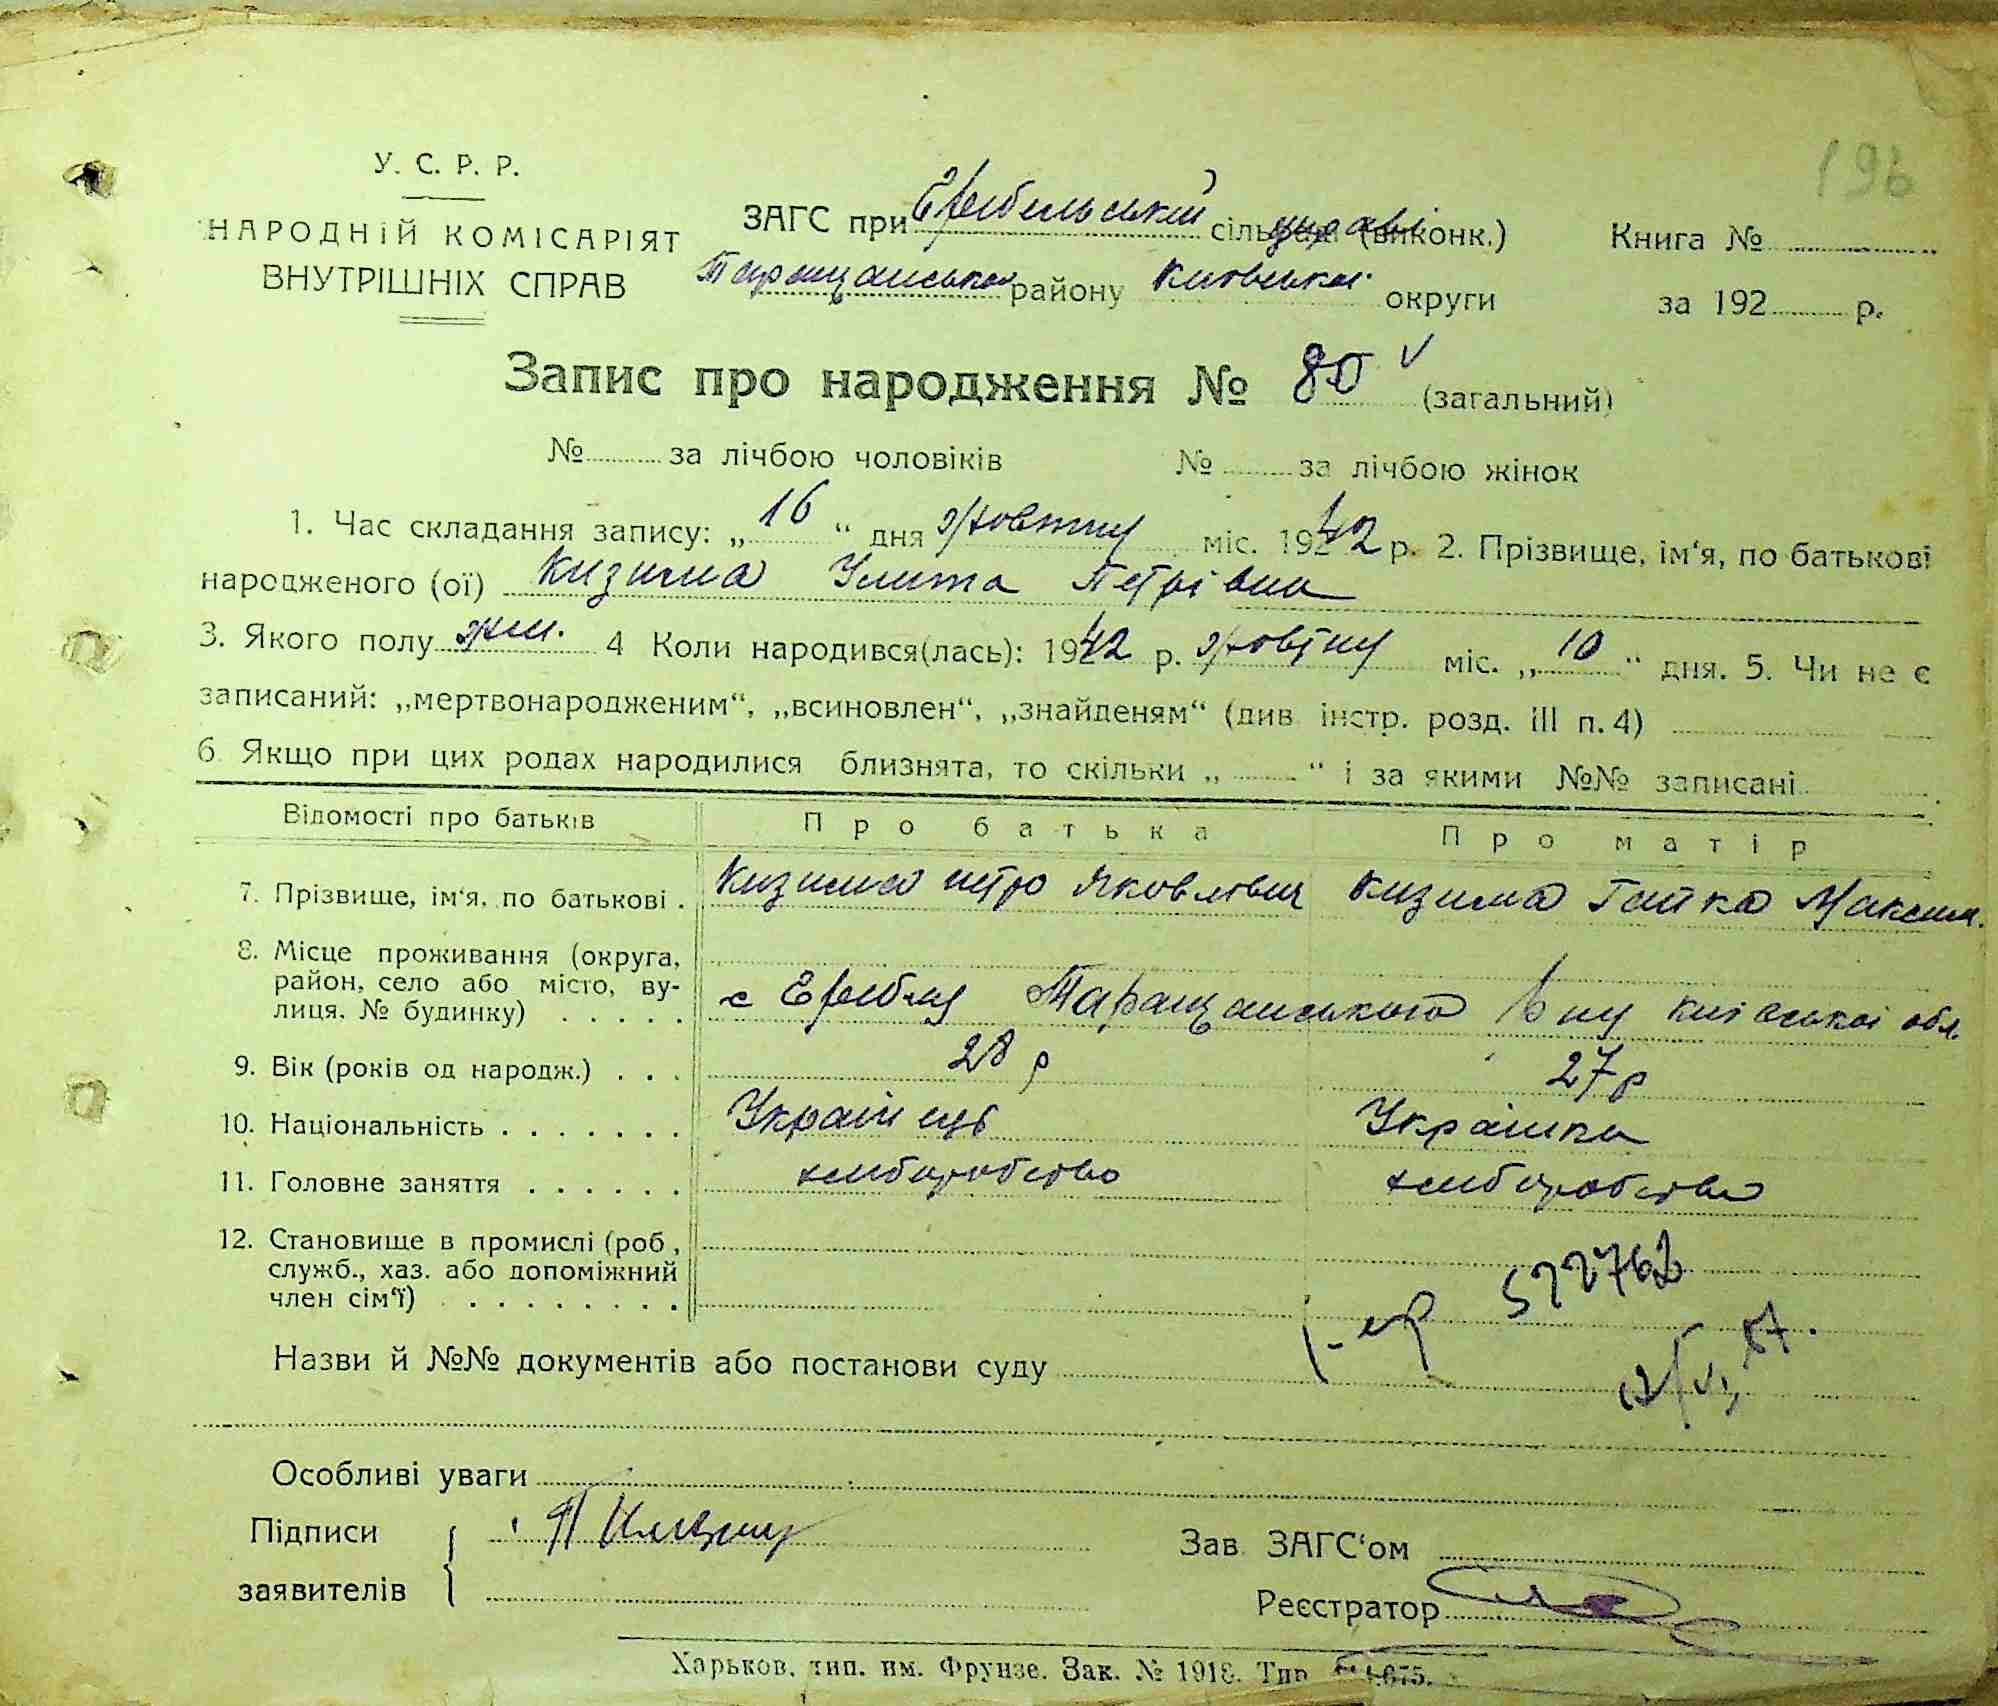 196
У. С. Р. Р.
НАРОДНІЙ КОМІСАРІЯТ
ВНУТРІШНІХ СПРАВ
ЗАГС при сіль управі (виконк.)
Таращанської району Київської округи
Книга №
за 192 р.
Запис про народження № 80 (загальний)
№ за лічбою чоловіків № за лічбою жінок
1. Час складання запису: „16“ дня жовтня міс. 1942 р. 2. Прізвище, ім‘я, по батькові
народженого (ої) Кизима Улита Петрівна
3. Якого полу жін. 4 Коли народився(лась): 1942 р. жовтня міс. „10“ дня. 5. Чи не є
записаний: „мертвонародженим“, „всиновлен“, „знайденям“ (див інстр. розд. III п. 4)
6. Якщо при цих родах народилися близнята, то скільки „ “ і за якими №№ записані
Відомості про батьків Про батька Про матір
7. Прізвище, ім‘я, по батькові . Кизима Петро Яковлевич Кизима Гапка Максим.
8. Місце проживання (округа,
район, село або місто, ву-
лиця, № будинку) . . . . . с Таращанського р ну Київської обл.
9. Вік (років од народж.) . . . 28 р 27 р
10. Національність . . . . . . . Українець Українка
11. Головне заняття . . . . . . хліборобство хліборобство
12. Становище в промислі (роб ,
служб., хаз. або допоміжний
член сім‘ї) . . . . . . . .
522762
Назви й №№ документів або постанови суду
12/VI 57.
Особливі уваги
Підписи
заявителів
П Кизима
Зав ЗАГС‘ом
Реєстратор
Харьков, тип. им. Фрунзе. Зак. № 1918. Тир